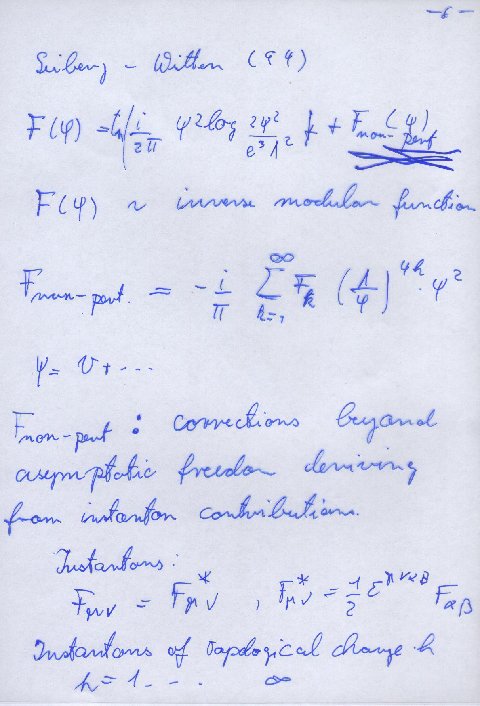 - 6 -
Seiberg - Witten (94)
F(φ) = tr ( i/2π φ² log 2φ²/e³Λ² + F non-pert (φ)
F(φ) ~ inverse modular function
F non-pert. = - i/π ∑ k=1 ∞ F k (Λ/φ)^4k · φ²
φ = v + ...
F non-pert : corrections beyond
asymptotic freedom deriving
from instanton contributions.
Instantons:
F μν = F μν * , F μν * = 1/2 ε μναβ F αβ
Instantons of topological charge k
k = 1 ... ∞